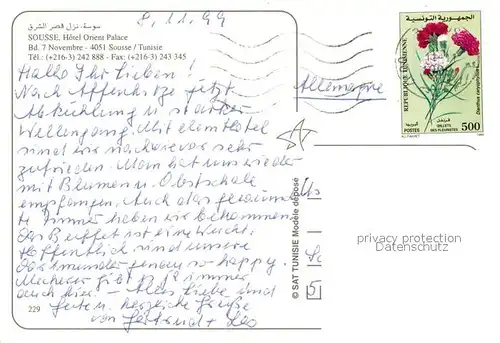 سوسة، نزل قصر الشرق
SOUSSE, Hôtel Orient Palace
Bd. 7 Novembre - 4051 Sousse / Tunisie
Tél.: (+216-3) 242 888 - Fax: (+216-3) 243 345
8.11.99
Hallo Ihr Lieben!
Nach Affenhitze jetzt
Abkühlung u. starker
Wellengang. Mit dem Hotel
sind wir nach wie vor sehr
zufrieden. Man hat uns wieder
mit Blumen u. Obstschale
empfangen. Auch das gewünsch-
te Zimmer haben wir bekommen.
Das Buffet ist eine Wucht.
Hoffentlich sind unsere
Dortmunder genau so happy.
Meckerer gibt es ja immer
auch hier. - Alles Liebe und
Gute u. herzliche Grüße
von Gertrud + Leo
229
© SAT TUNISIE Modèle déposé
SAT
Allemagne
الجمهورية التونسية
REPUBLIQUE TUNISIENNE
Dianthus caryophyllus
قرنفل
OEILLETS
DES FLEURISTES
POSTES
البريد
500
privacy protection
Datenschutz